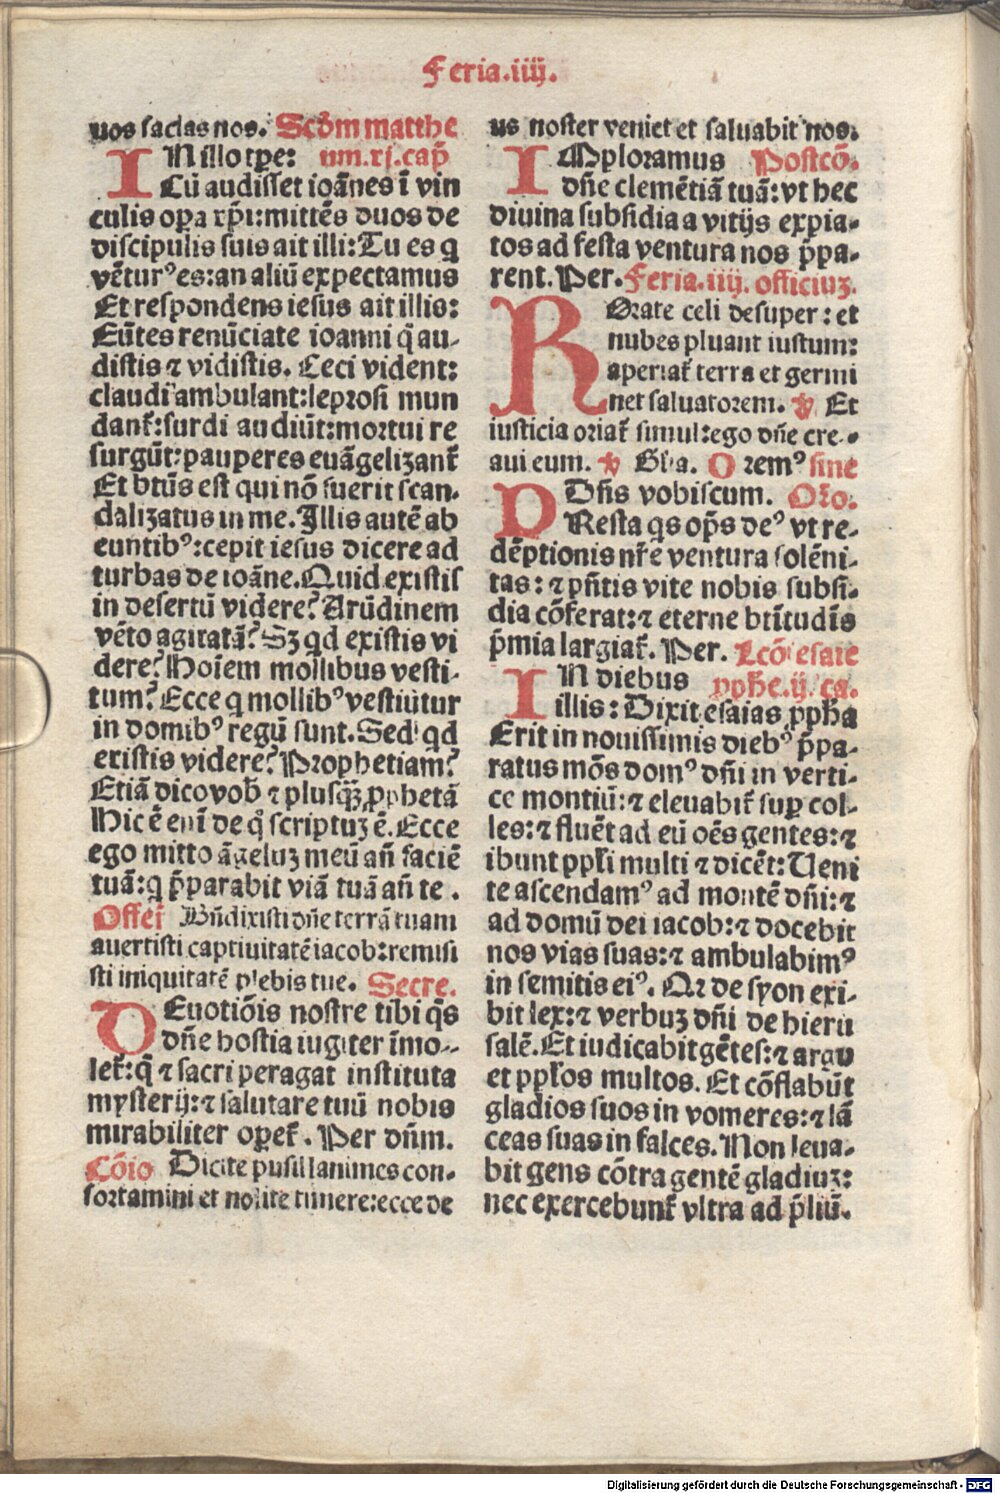 Feria.iiij.
uos facias nos. Scd̄m matthe
IN illo tp̄e: um.xj.cap̄
Cū audisset ioānes ī vin
culis oꝑa xp̄i:mittēs duos de
discipulis suis ait illi:Tu es q
vētur⁹ es:an aliū expectamus
Et respondens iesus ait illis:
Eūtes renūciate ioanni q̄ au-
distis ⁊ vidistis. Ceci vident:
claudi ambulant:leprosi mun
dant̄:surdi audiūt:mortui re
surgūt:pauperes euāgelizant̄
Et btūs est qui nō fuerit scan-
dalizatus in me. Illis autē ab
euntib⁹:cepit iesus dicere ad
turbas de ioāne. Quid existis
in desertū videre? Arūdinem
vēto agitatā? Sꝫ qd existis vi
dere? Hoīem mollibus vesti-
tum? Ecce q mollib⁹ vestiūtur
in domib⁹ regū sunt. Sed qd
existis videre? Prophetiam?
Etiā dico vob̄ ⁊ plusq̄ꝫ ꝓphetā
Hic ē enī de q̊ scriptuꝫ ē. Ecce
ego mitto āgeluꝫ meū añ faciē
tuā:q p̄parabit viā tuā añ te.
Offeř Bn̄dixisti dn̄e terrā tuam
auertisti captiuitatē iacob:remisi
sti iniquitatē plebis tue. Secre.
DEuotiōis nostre tibi q̄s
dn̄e hostia iugiter īmo-
let̄:q̄ ⁊ sacri peragat instituta
mysterij:⁊ salutare tuū nobis
mirabiliter oꝑet̄. Per dn̄m.
Cōio Dicite pusillanimes con-
fortamini et nolite timere:ecce de
us noster veniet et saluabit nos.
IMploramus Postcō.
dn̄e clemētiā tuā:vt hec
diuina subsidia a vitijs expia-
tos ad festa ventura nos p̄pa-
rent. Per. Feria.iiij. officiuꝫ.
ROrate celi desuper: et
nubes pluant iustum:
aperiat̄ terra et germi
net saluatorem. ℣ Et
iusticia oriat̄ simul:ego dn̄e cre-
aui eum. ℣ Gl'a. Orem⁹ sine
Dn̄s vobiscum. Oŕo.
PResta q̄s op̄s de⁹ vt re-
dēptionis nr̄e ventura solēni-
tas: ⁊ pn̄tis vite nobis subsi-
dia cōferat:⁊ eterne btītudīs
p̄mia largiat̄. Per. Lcō esaie
IN diebus ꝓphe.ij. ca.
illis: Dixit esaias ꝓpha
Erit in nouissimis dieb⁹ p̄pa-
ratus mōs dom⁹ dn̄i in verti-
ce montiū:⁊ eleuabit̄ suꝑ col-
les:⁊ fluēt ad eū oēs gentes:⁊
ibunt ppl'i multi ⁊ dicēt:Ueni
te ascendam⁹ ad montē dn̄i:⁊
ad domū dei iacob:⁊ docebit
nos vias suas:⁊ ambulabim⁹
in semitis ei⁹. Qz de syon exi-
bit lex:⁊ verbuꝫ dn̄i de hieru
salē. Et iudicabit gētes:⁊ argu
et ppl'os multos. Et cōflabūt
gladios suos in vomeres:⁊ lā
ceas suas in falces. Non leua-
bit gens cōtra gentē gladiuꝫ:
nec exercebunt̄ vltra ad p̄liū.
Digitalisierung gefördert durch die Deutsche Forschungsgemeinschaft - DFG